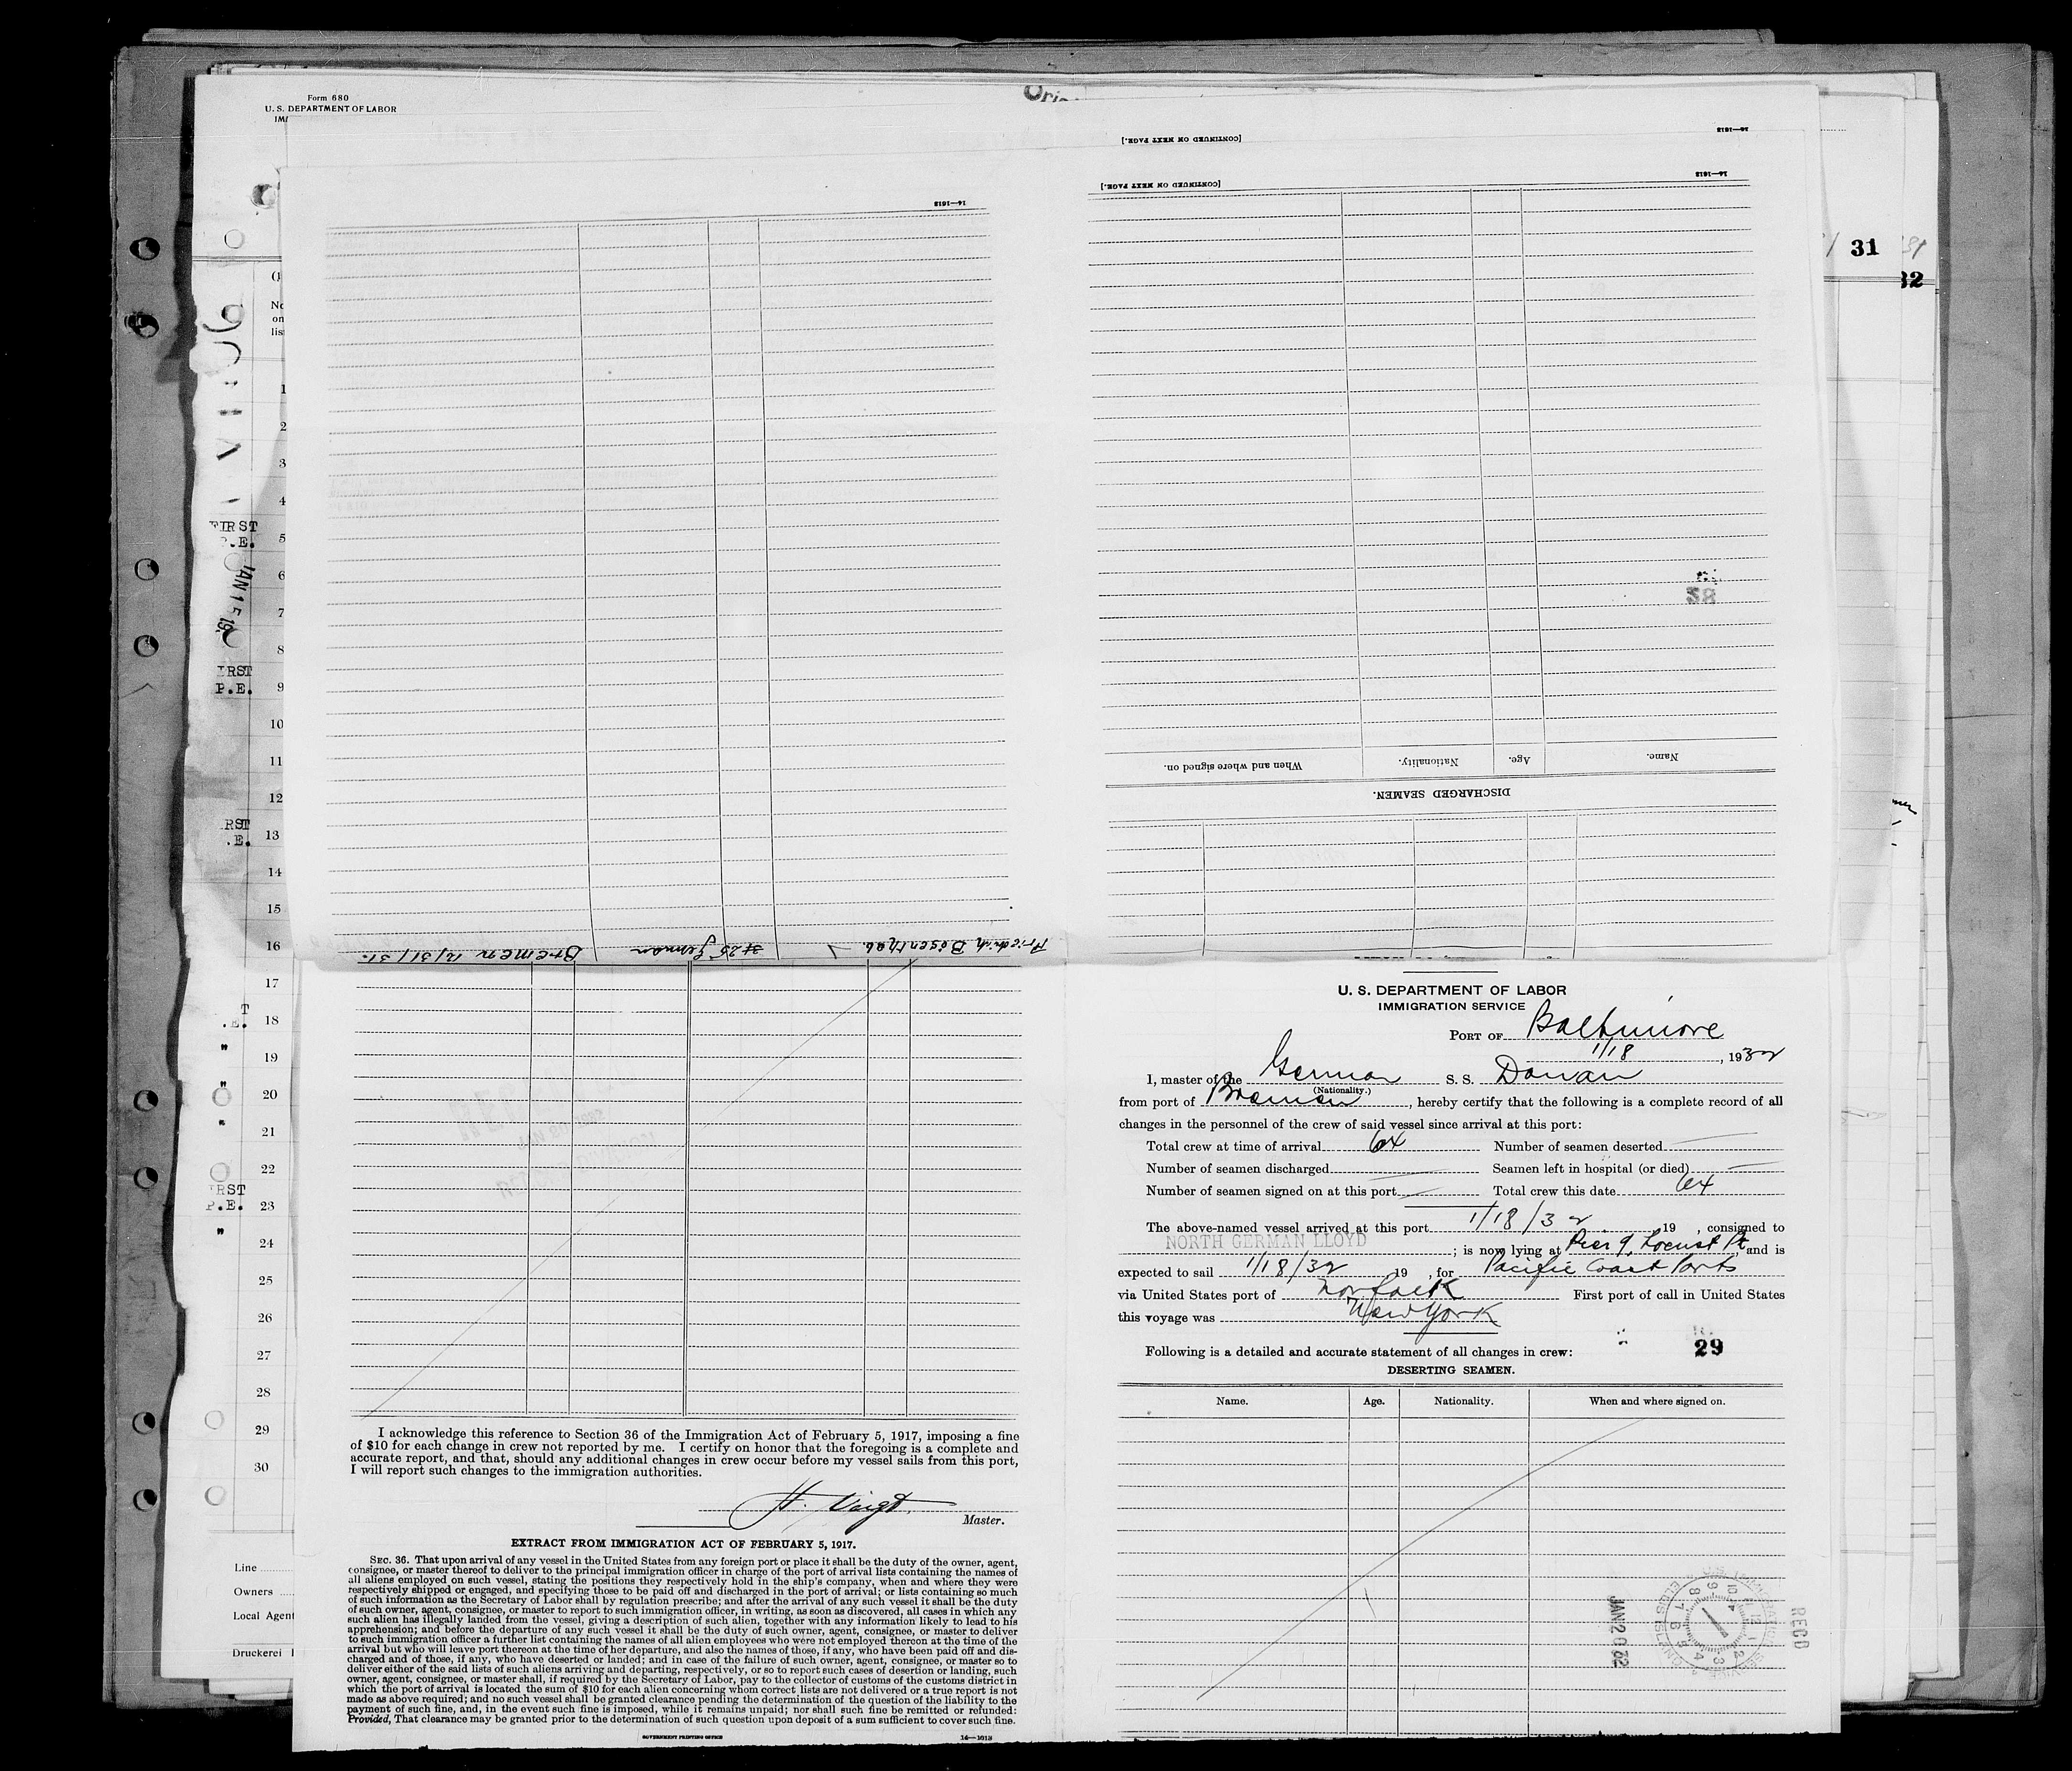 Form 680
U. S. DEPARTMENT OF LABOR
31
FIRST
P.E.
JAN 15
1
2
3
4
5
6
7
8
9
10
11
12
13
14
15
16
17
18
19
20
21
22
23
24
25
26
27
28
29
30
Line
Owners
Local Agent
Druckerei
[CONTINUED ON NEXT PAGE.]
14—1613
[CONTINUED ON NEXT PAGE.]
14—1613
14—1613
38
Name. Age. Nationality. When and where signed on.
DISCHARGED SEAMEN.
Friedrich 25 German Bremen 12/31/31.
I acknowledge this reference to Section 36 of the Immigration Act of February 5, 1917, imposing a fine
of $10 for each change in crew not reported by me. I certify on honor that the foregoing is a complete and
accurate report, and that, should any additional changes in crew occur before my vessel sails from this port,
I will report such changes to the immigration authorities.
H. Voigt.
Master.
EXTRACT FROM IMMIGRATION ACT OF FEBRUARY 5, 1917.
SEC. 36. That upon arrival of any vessel in the United States from any foreign port or place it shall be the duty of the owner, agent,
consignee, or master thereof to deliver to the principal immigration officer in charge of the port of arrival lists containing the names of
all aliens employed on such vessel, stating the positions they respectively hold in the ship's company, when and where they were
respectively shipped or engaged, and specifying those to be paid off and discharged in the port of arrival; or lists containing so much
of such information as the Secretary of Labor shall by regulation prescribe; and after the arrival of any such vessel it shall be the duty
of such owner, agent, consignee, or master to report to such immigration officer, in writing, as soon as discovered, all cases in which any
such alien has illegally landed from the vessel, giving a description of such alien, together with any information likely to lead to his
apprehension; and before the departure of any such vessel it shall be the duty of such owner, agent, consignee, or master to deliver
to such immigration officer a further list containing the names of all alien employees who were not employed thereon at the time of the
arrival but who will leave port thereon at the time of her departure, and also the names of those, if any, who have been paid off and dis-
charged and of those, if any, who have deserted or landed; and in case of the failure of such owner, agent, consignee, or master so to
deliver either of the said lists of such aliens arriving and departing, respectively, or so to report such cases of desertion or landing, such
owner, agent, consignee, or master shall, if required by the Secretary of Labor, pay to the collector of customs of the customs district in
which the port of arrival is located the sum of $10 for each alien concerning whom correct lists are not delivered or a true report is not
made as above required; and no such vessel shall be granted clearance pending the determination of the question of the liability to the
payment of such fine, and, in the event such fine is imposed, while it remains unpaid; nor shall such fine be remitted or refunded:
Provided, That clearance may be granted prior to the determination of such question upon deposit of a sum sufficient to cover such fine.
GOVERNMENT PRINTING OFFICE 14—1613
U. S. DEPARTMENT OF LABOR
IMMIGRATION SERVICE
PORT OF Baltimore
1/18, 1932
I, master of the German S. S. Donau
(Nationality.)
from port of Bremen, hereby certify that the following is a complete record of all
changes in the personnel of the crew of said vessel since arrival at this port:
Total crew at time of arrival 64 Number of seamen deserted —
Number of seamen discharged — Seamen left in hospital (or died) —
Number of seamen signed on at this port — Total crew this date 64
The above-named vessel arrived at this port 1/18/32, 19 , consigned to
NORTH GERMAN LLOYD; is now lying at Pier 9, Locust Pt and is
expected to sail 1/18/32 19 , for Pacific Coast Ports
via United States port of Norfolk First port of call in United States
this voyage was New York
Following is a detailed and accurate statement of all changes in crew:
29
DESERTING SEAMEN.
Name. Age. Nationality. When and where signed on.
REC'D
JAN 20 32